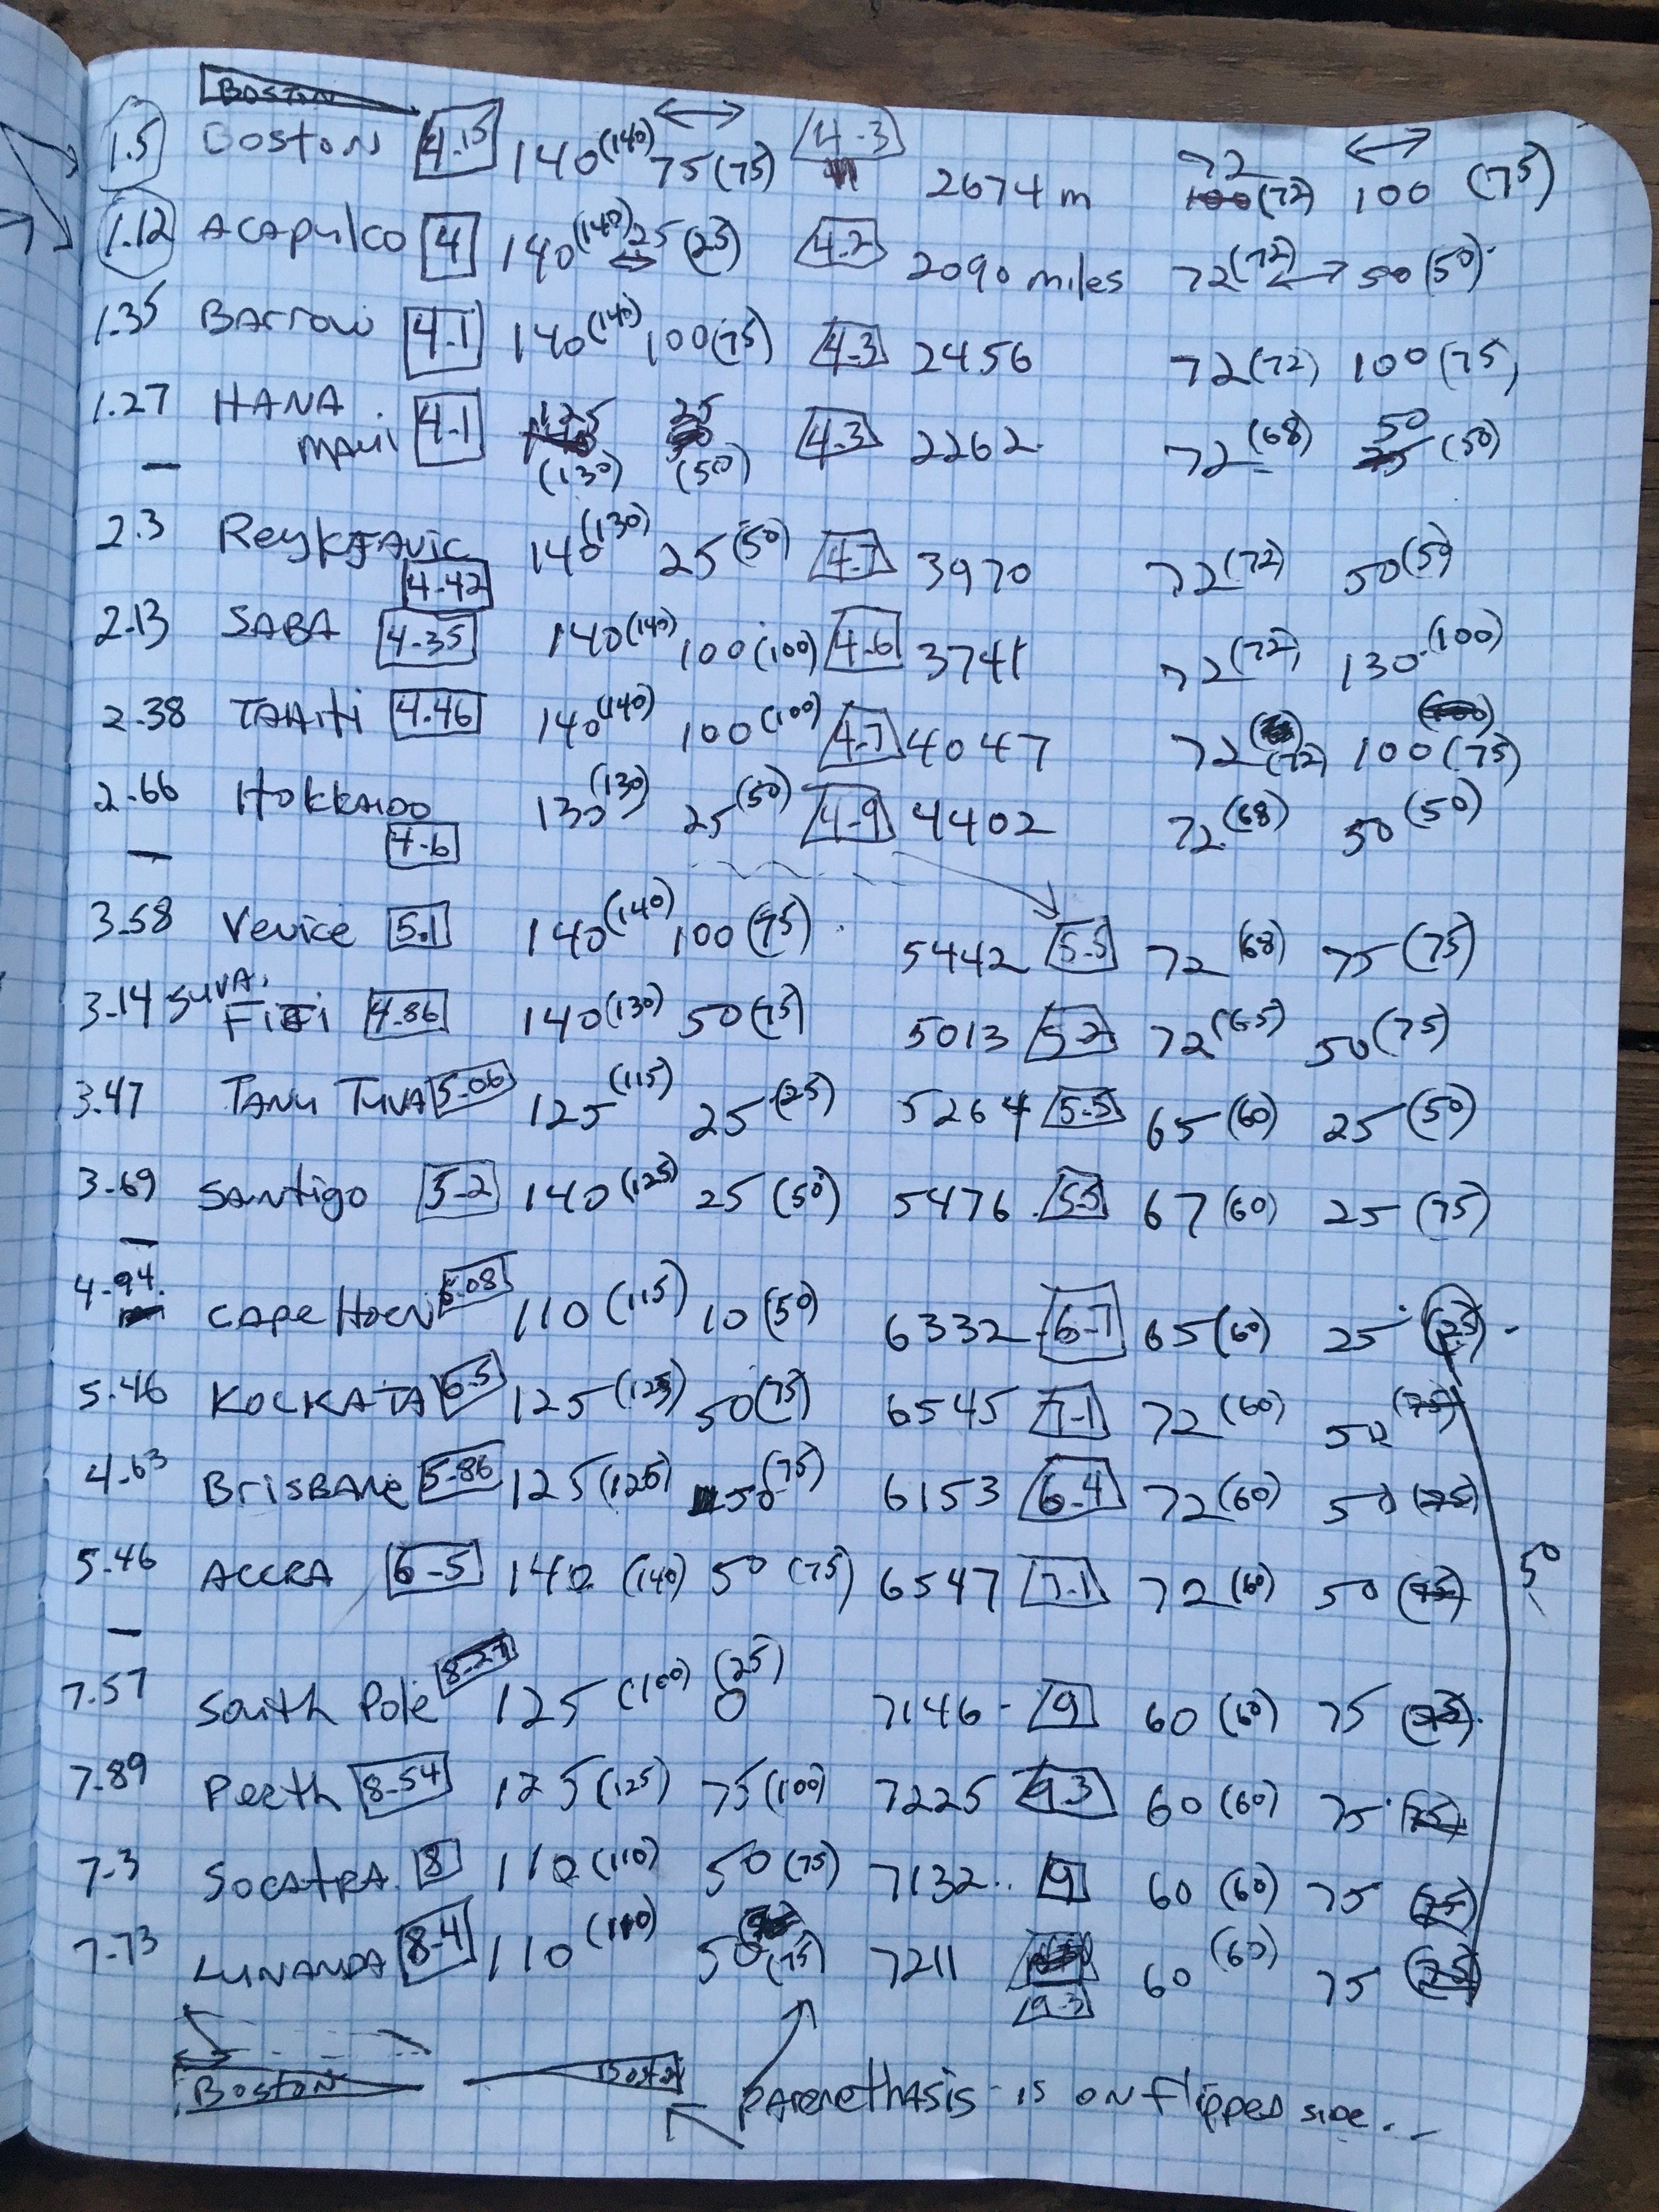 BOSTON
1.5 Boston 4.15 140 (140) 75 (75) 4.3 2674 m 72 100 (72) 100 (75)
1.12 ACApulco 4 140 (140) 25 (25) 4.2 2090 miles 72 (72) 50 (50)
1.35 BArrow 4.1 140 (140) 100 (75) 4.3 2456 72 (72) 100 (75)
1.27 HANA MAui 4.1 125 (130) 25 (50) 4.3 2262 72 (68) 50 (50)
2.3 ReykJAvic 4.42 140 (130) 25 (50) 4.7 3970 72 (72) 50 (50)
2.13 SABA 4.35 140 (140) 100 (100) 4.6 3741 72 (72) 130 (100)
2.38 TAHiti 4.46 140 (140) 100 (100) 4.7 4047 72 (72) 100 (75)
2.66 HOKKAIDO 4.6 130 (130) 25 (50) 4.9 4402 72 (68) 50 (50)
3.58 Venice 5.1 140 (140) 100 (75) 5442 5.5 72 (68) 75 (75)
3.14 SUVA, FiJi 4.86 140 (130) 50 (75) 5013 5.2 72 (65) 50 (75)
3.47 TANU TUVA 5.06 125 (115) 25 (25) 5264 5.5 65 (60) 25 (50)
3.69 SANtigo 5.2 140 (125) 25 (50) 5476 5.5 67 (60) 25 (75)
4.94 CApe HOrN 6.08 110 (115) 10 (50) 6332 6.7 65 (60) 25 (25)
5.46 KOLKATA 6.5 125 (125) 50 (75) 6545 7.1 72 (60) 50 (75)
4.63 BrisBANe 5.86 125 (125) 50 (75) 6153 6.4 72 (60) 50 (75)
5.46 ACCRA 6.5 140 (140) 50 (75) 6547 7.1 72 (60) 50 (75) 50
7.57 South Pole 8.27 125 (100) 0 (25) 7146 9 60 (60) 75
7.89 Perth 8.54 125 (125) 75 (100) 7225 9.3 60 (60) 75 (75)
7.3 SOCATRA 8 110 (110) 50 (75) 7132 9 60 (60) 75 (75)
7.73 LUNANDA 8.4 110 (110) 50 (75) 7211 60 (60) 75 (75)
BOSTON Boston pArenethAsis is ON flipped side.